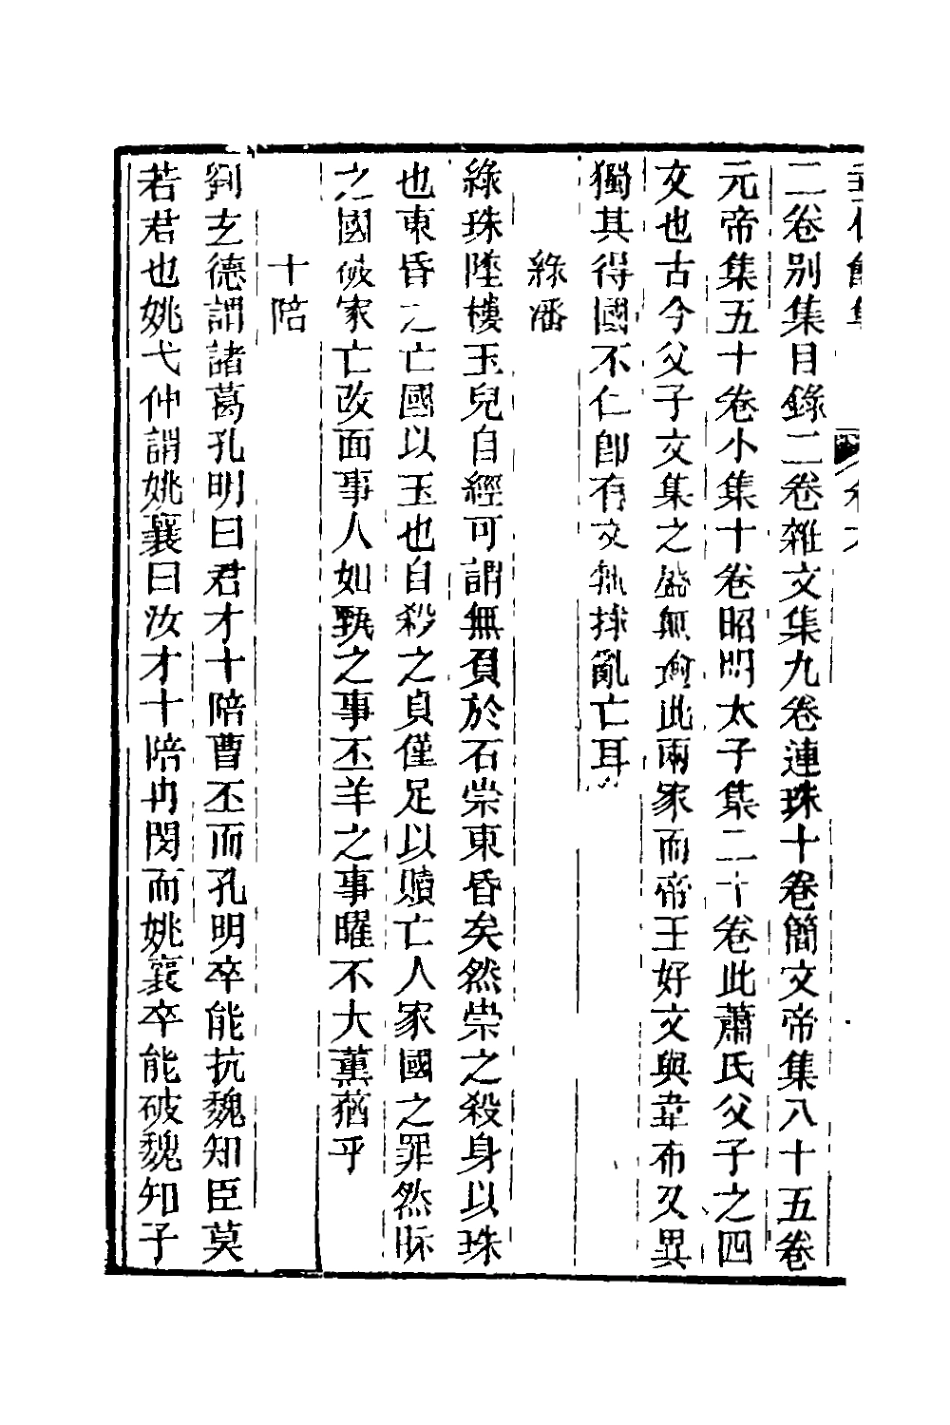 二卷别集目錄二卷雜文集九卷連珠十卷簡文帝集八十五卷
元帝集五十卷小集十卷昭明太子集二十卷此蕭氏父子之四
文也古今父子文集之盛無逾此兩家而帝王好文與韋布又異
獨其得國不仁卽有文無捄亂亡耳
綠潘
綠珠墜樓玉兒自經可謂無負於石崇東昏矣然崇之殺身以珠
也東昏之亡國以玉也自殺之貞僅足以贖亡人家國之罪然眎
之國破家亡改面事人如甄之事丕羊之事曜不大薰蕕乎
十陪
劉玄德謂諸葛孔明曰君才十陪曹丕而孔明卒能抗魏知臣莫
若君也姚弋仲謂姚襄曰汝才十陪冉閔而姚襄卒能破魏知子